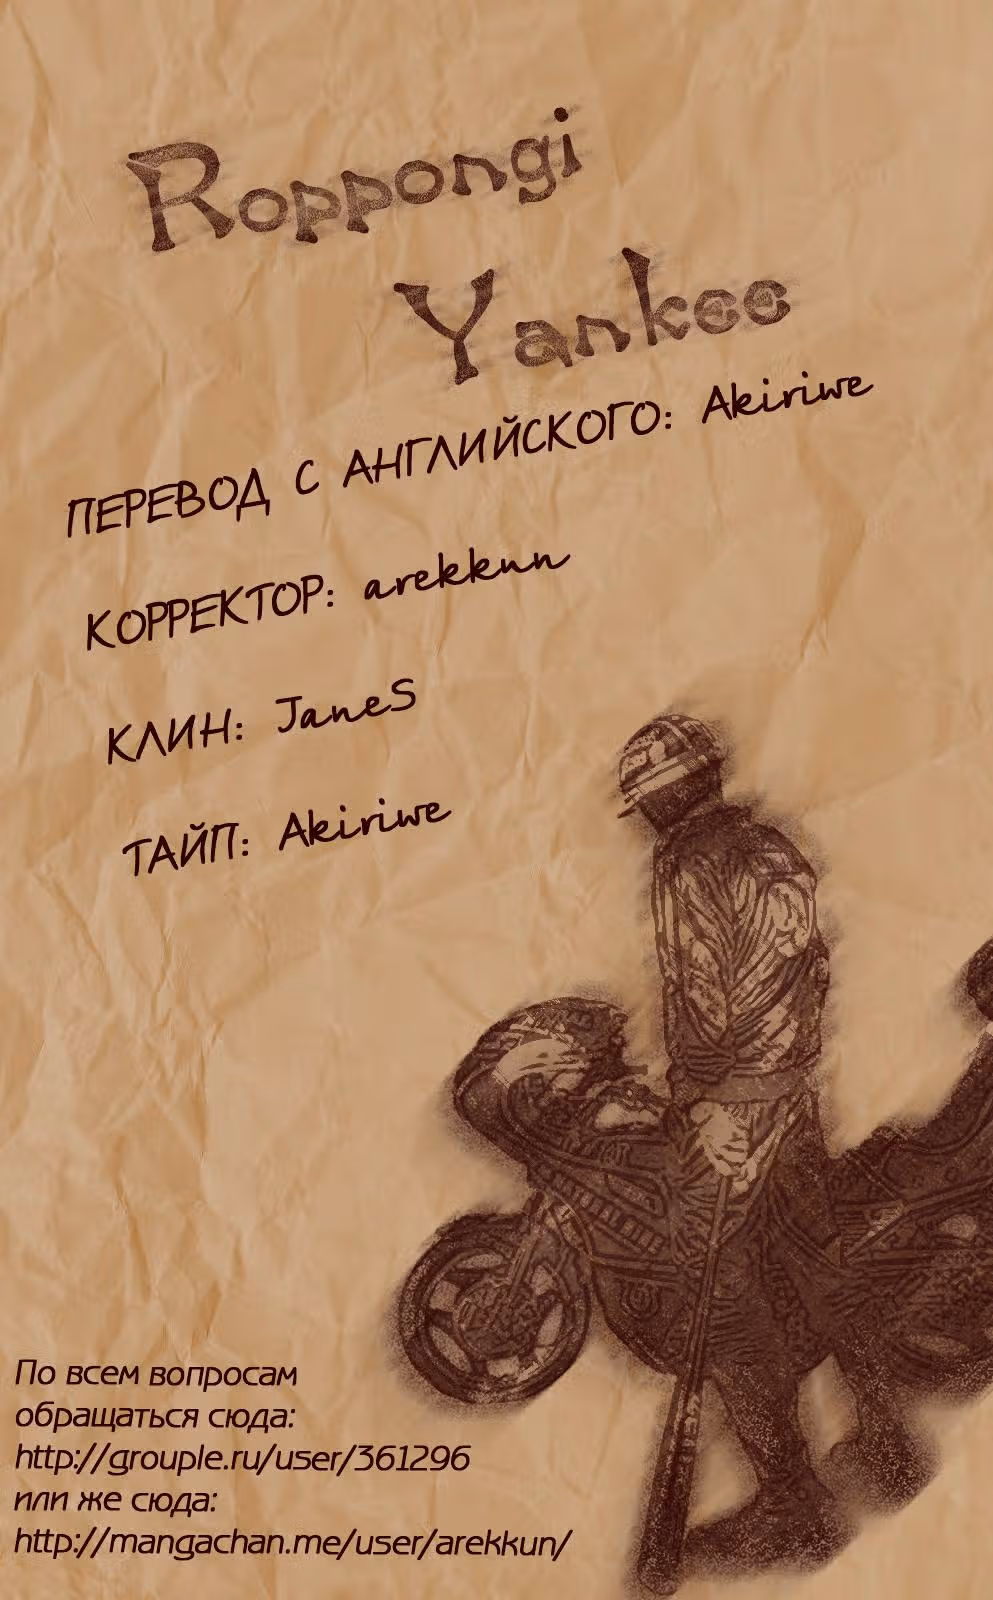 Roppongi
Yankee
ПЕРЕВОД С АНГЛИЙСКОГО: Akiriwe
КОРРЕКТОР: arekkun
КЛИН: JaneS
ТАЙП: Akiriwe
По всем вопросам
обращаться сюда:
http://grouple.ru/user/361296
или же сюда:
http://mangachan.me/user/arekkun/